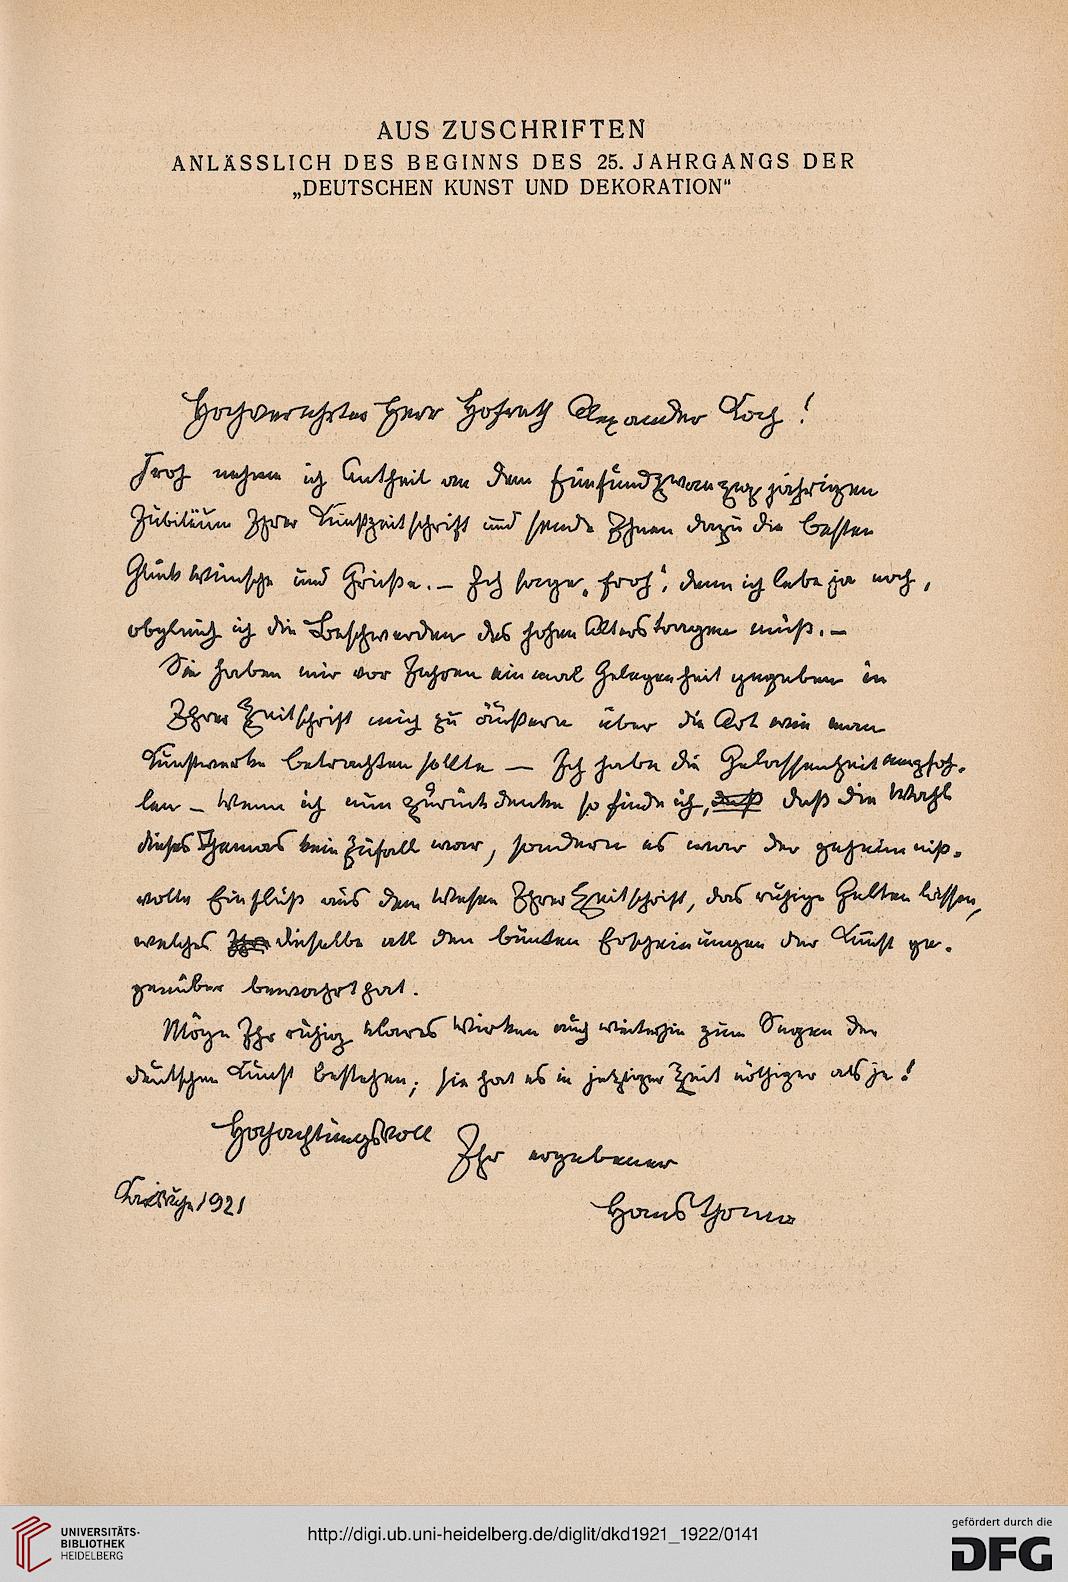 AUS ZUSCHRIFTEN
ANLÄSSLICH DES BEGINNS DES 25. JAHRGANGS DER
„DEUTSCHEN KUNST UND DEKORATION“
Hochverehrter Herr Hofrath Alexander Koch!
Froh nehme ich Antheil an dem fünfundzwanzig jährigen
Jubiläum Ihrer Kunstzeitschrift und sende Ihnen dazu die besten
Glück wünsche und Grüße. – Ich sage „froh“, denn ich lebe ja noch,
obgleich ich die Beschwerden des hohen Alters tragen muß. –
Sie haben mir vor Jahren ein mal Gelegenheit gegeben in
Ihrer Zeitschrift mich zu äußern über die Art wie man
Kunstwerke betrachten sollte — Ich habe die Gelassenheit empfoh-
len – Wenn ich nun zurück denke so finde ich, daß daß die Wahl
dieses Themas kein Zufall war, sondern es war der geheimniß-
volle Einfluß aus dem Wesen Ihrer Zeitschrift, das ruhige Gelten lassen,
welches dieselbe all den bunten Erscheinungen der Kunst ge-
genüber bewahrt hat.
Möge Ihr ruhig klares Wirken auch weiterhin zum Segen der
deutschen Kunst bestehen; sie hat es in jetziger Zeit nöthiger als je!
Hochachtungsvoll
Ihr ergebener
Karlsruhe 1921
Hans Thoma
UNIVERSITÄTS-
BIBLIOTHEK
HEIDELBERG
http://digi.ub.uni-heidelberg.de/diglit/dkd1921_1922/0141
gefördert durch die
DFG